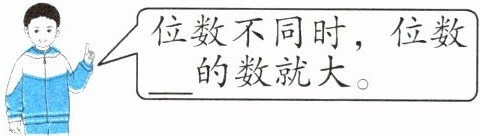 位数不同时，位数
___的数就大。